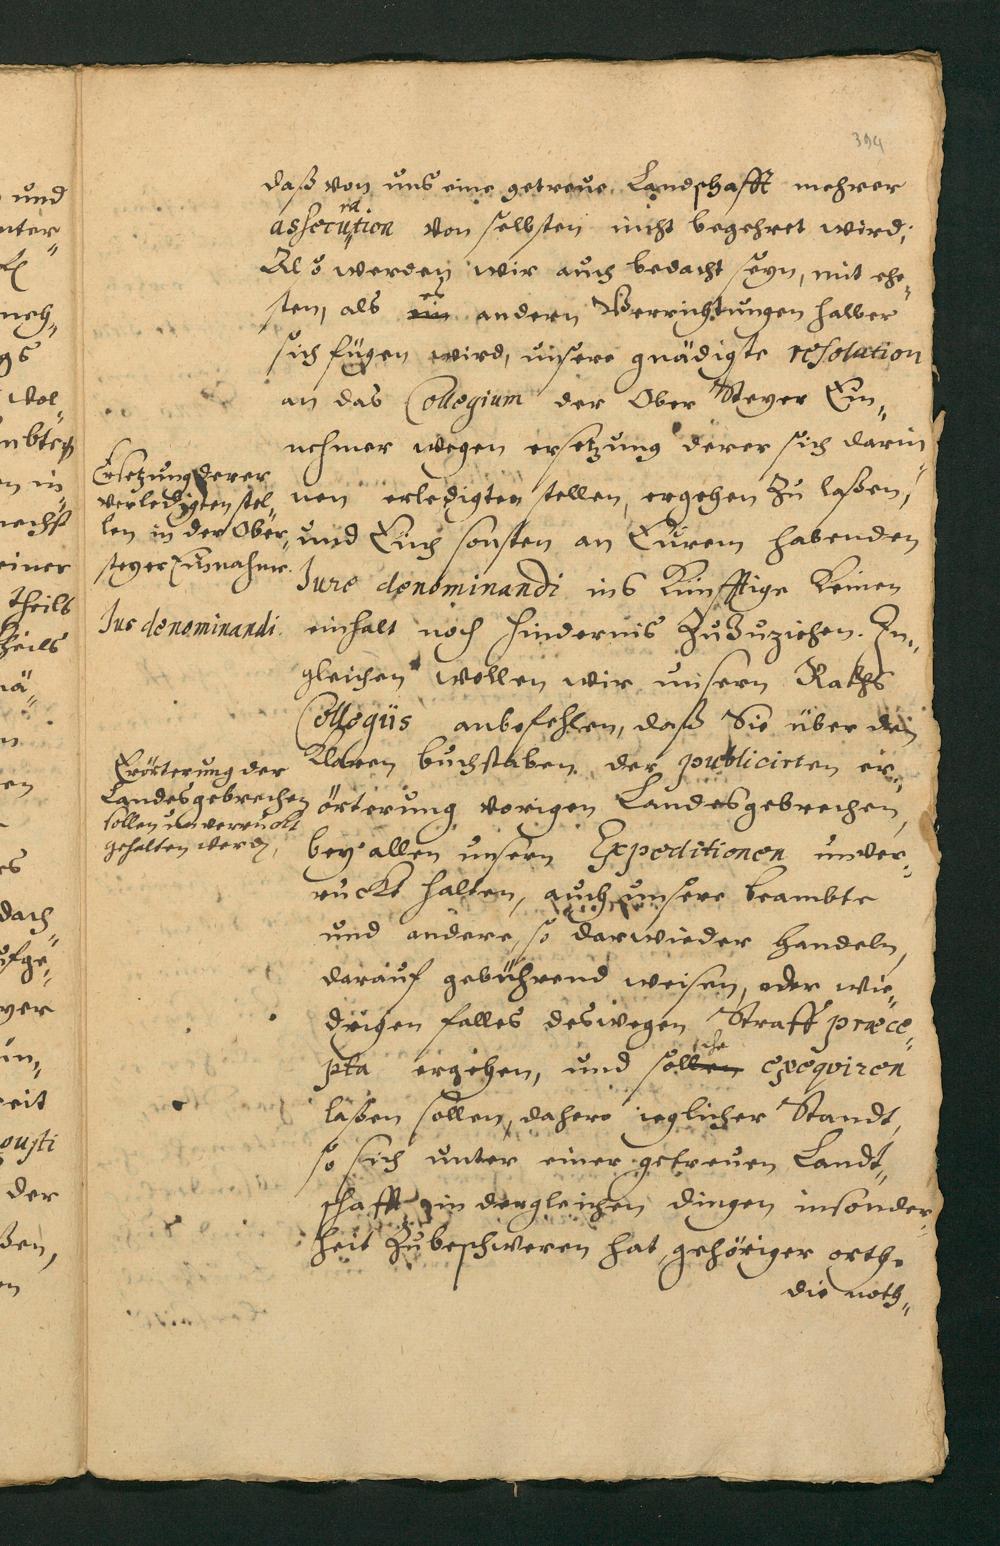 394
daß von uns eine getreue Landschafft mehrer
assecuration von selbsten nicht begehret wird;
Also werden wir auch bedacht seyn, mit ehe„
sten, als es andern Verrichtungen halber
sich fügen wird, unsere gnädigte resolution
an das Collegium der Ober Steyer Ein„
nehmer wegen ersetzung derer sich darin„
nen erledigten stellen, ergehen Zu laßen,
und Euch sonsten an Eurem habenden
Jure denominandi ins Künfftige keinen
einhalt noch hindernis Zuzuziehen. In„
gleichen wollen wir unsern Raths
Collegiis anbefehlen, daß Sie über den
klaren buchstaben der publicirten er„
örterung voriger Landesgebrechen,
bey allen unsern Expeditionen unver„
ruckt halten, auch unsere beambte
und andere, so darwieder handeln,
darauf gebührend weisen, oder wie„
drigen falles deswegen Straff præce„
pta ergehen, und solche exeqviren
laßen sollen, dahero ieglicher Standt,
so sich unter einer getreuen Landt„
schafft in dergleichen dingen insonder„
heit Zubeschweren hat, gehöriger orth.
die noth„
Ersetzung derer
verledigten stel„
len in der Ober„
steyer Einnahme.
Jus denominandi.
Erörterung der
Landesgebrechen
sollen unverruckt
gehalten werden,
und
nter„
neh„
gs
Vol„
mbten
en in„
nechst
einer
theils
theils
nä„
n
en
es
dach„
ufge„
yer
ün„
eit
gusti
der
ßen,
en